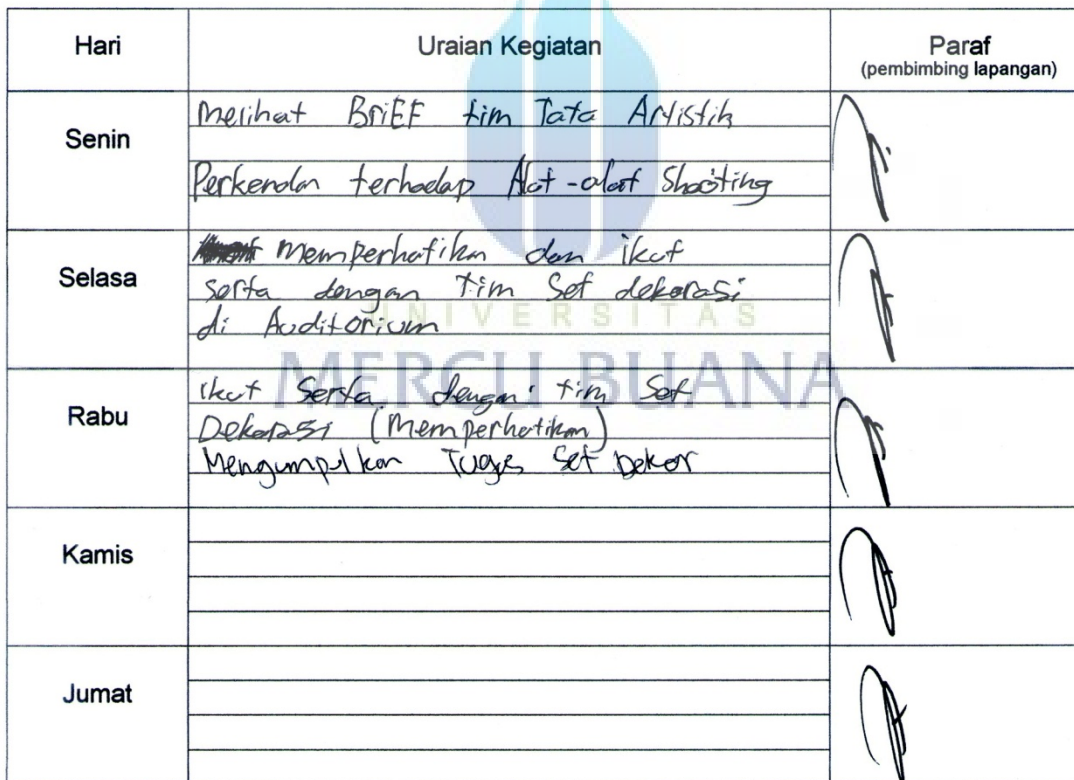 Hari Uraian Kegiatan Paraf
(pembimbing lapangan)
Senin
Melihat BriEF tim Tata Artistik
Perkenalan terhadap Alat-alat Shooting
Selasa
memperhatikan dan ikut
serta dengan Tim Set dekorasi
di Auditorium
UNIVERSITAS
MERCU BUANA
Rabu
ikut Serta dengan tim Set
Dekorasi (Memperhatikan)
Mengumpulkan Tugas Set Dekor
Kamis
Jumat